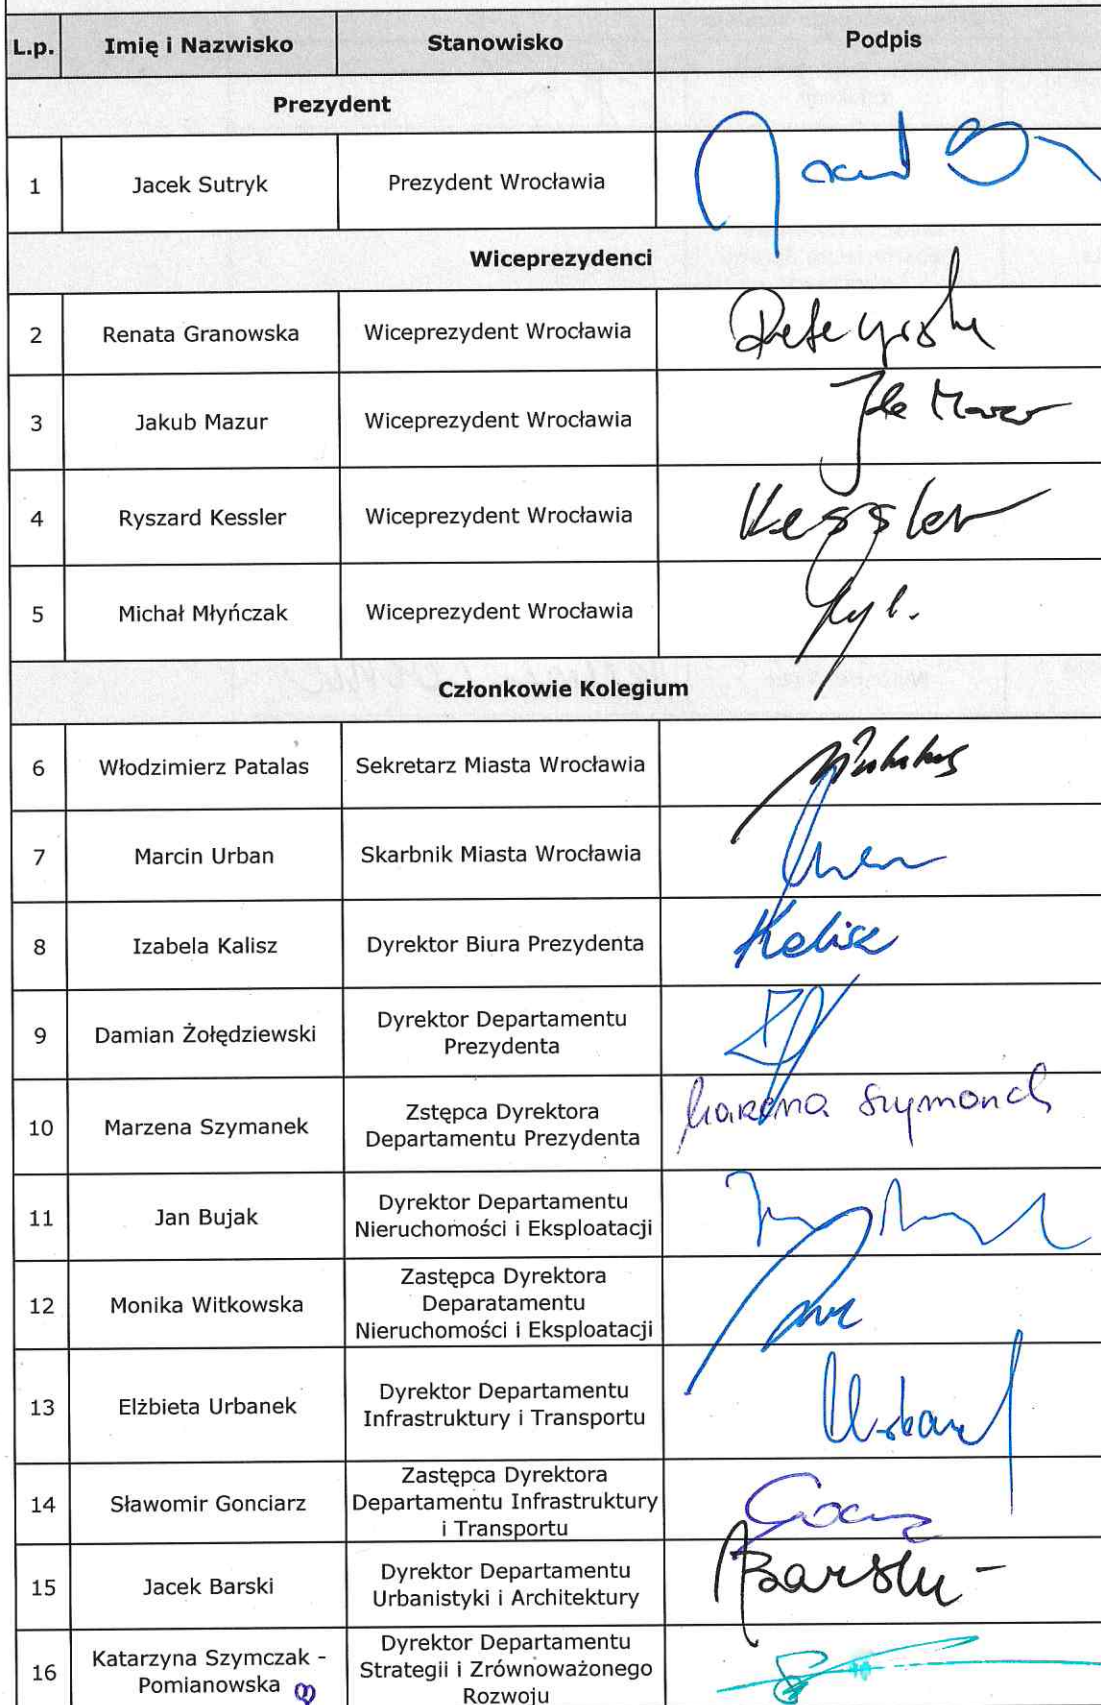 L.p. Imię i Nazwisko Stanowisko Podpis
Prezydent
1 Jacek Sutryk Prezydent Wrocławia
Wiceprezydenci
2 Renata Granowska Wiceprezydent Wrocławia
3 Jakub Mazur Wiceprezydent Wrocławia Mazur
4 Ryszard Kessler Wiceprezydent Wrocławia Kessler
5 Michał Młyńczak Wiceprezydent Wrocławia
Członkowie Kolegium
6 Włodzimierz Patalas Sekretarz Miasta Wrocławia
7 Marcin Urban Skarbnik Miasta Wrocławia
8 Izabela Kalisz Dyrektor Biura Prezydenta Kalisz
9 Damian Żołędziewski Dyrektor Departamentu
Prezydenta
10 Marzena Szymanek Zstępca Dyrektora
Departamentu Prezydenta
Marzena Szymanek
11 Jan Bujak Dyrektor Departamentu
Nieruchomości i Eksploatacji
12 Monika Witkowska Zastępca Dyrektora
Deparatamentu
Nieruchomości i Eksploatacji
13 Elżbieta Urbanek Dyrektor Departamentu
Infrastruktury i Transportu
14 Sławomir Gonciarz Zastępca Dyrektora
Departamentu Infrastruktury
i Transportu
15 Jacek Barski Dyrektor Departamentu
Urbanistyki i Architektury
Barski
16 Katarzyna Szymczak -
Pomianowska
Dyrektor Departamentu
Strategii i Zrównoważonego
Rozwoju